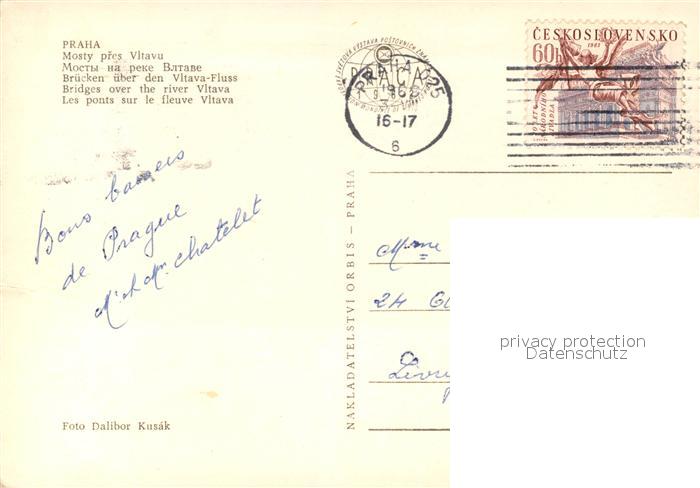 PRAHA
Mosty přes Vltavu
Мосты на реке Влтаве
Brücken über den Vltava-Fluss
Bridges over the river Vltava
Les ponts sur le fleuve Vltava
PRAHA 025
1962
16-17
6
ČESKOSLOVENSKO
60h
Bons baisers
de Prague
Mr et Mme Chatelet
NAKLADATELSTVÍ ORBIS – PRAHA
Mme
24
privacy protection
Datenschutz
Foto Dalibor Kusák